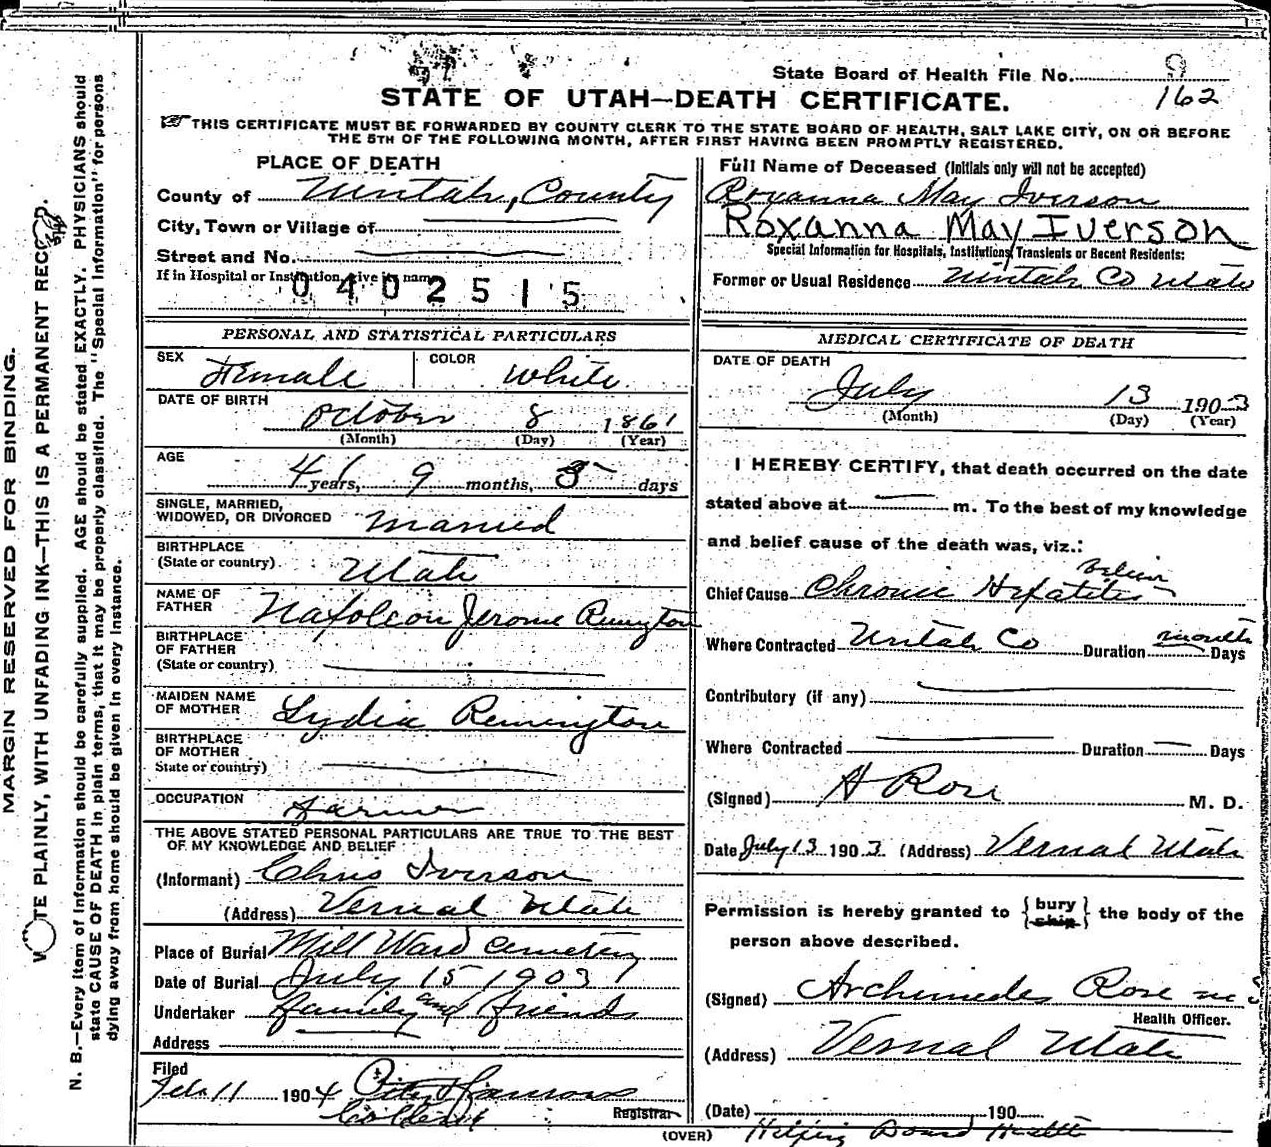 State Board of Health File No. 9
162
STATE OF UTAH—DEATH CERTIFICATE.
THIS CERTIFICATE MUST BE FORWARDED BY COUNTY CLERK TO THE STATE BOARD OF HEALTH, SALT LAKE CITY, ON OR BEFORE
THE 5TH OF THE FOLLOWING MONTH, AFTER FIRST HAVING BEEN PROMPTLY REGISTERED.
PLACE OF DEATH
County of Uintah, County
City, Town or Village of
Street and No.
If in Hospital or Institution, give its name
0402515
Full Name of Deceased (Initials only will not be accepted)
Roxanna May Iverson
Roxanna May Iverson
Special Information for Hospitals, Institutions, Transients or Recent Residents:
Former or Usual Residence Uintah Co Utah
PERSONAL AND STATISTICAL PARTICULARS
SEX Female COLOR White
DATE OF BIRTH
October 8 1861
(Month) (Day) (Year)
AGE
41 years, 9 months, 5 days
SINGLE, MARRIED,
WIDOWED, OR DIVORCED Married
BIRTHPLACE
(State or country) Utah
NAME OF
FATHER Napoleon Jerome Remington
BIRTHPLACE
OF FATHER
(State or country)
MAIDEN NAME
OF MOTHER Lydia Remington
BIRTHPLACE
OF MOTHER
State or country)
OCCUPATION Farmer
THE ABOVE STATED PERSONAL PARTICULARS ARE TRUE TO THE BEST
OF MY KNOWLEDGE AND BELIEF
(Informant) Chris Iverson
(Address) Vernal Utah
Place of Burial Mill Ward Cemetery
Date of Burial July 15 1903
Undertaker family and friends
Address
Filed
Feb 11 1904
Co Clerk
Registrar
MEDICAL CERTIFICATE OF DEATH
DATE OF DEATH
July 13 1903
(Month) (Day) (Year)
I HEREBY CERTIFY, that death occurred on the date
stated above at m. To the best of my knowledge
and belief cause of the death was, viz.:
Chief Cause Chronic Hepatitis
Where Contracted Uintah Co Duration months Days
Contributory (if any)
Where Contracted Duration Days
(Signed) A Rose M. D.
Date July 13 1903 (Address) Vernal Utah
Permission is hereby granted to {bury ship} the body of the
person above described.
(Signed) Archimedes Rose
Health Officer.
(Address) Vernal Utah
(Date) 190
(OVER) Board Health
MARGIN RESERVED FOR BINDING.
WRITE PLAINLY, WITH UNFADING INK—THIS IS A PERMANENT RECORD.
N. B.—Every item of information should be carefully supplied. AGE should be stated EXACTLY. PHYSICIANS should
state CAUSE OF DEATH in plain terms, that it may be properly classified. The "Special Information" for persons
dying away from home should be given in every instance.